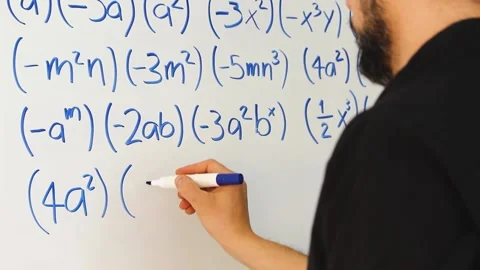 (a)(-3a)(a²) (-3x²)(-x³y)(
(-m²n)(-3m²)(-5mn³) (4a²)(
(-aᵐ)(-2ab)(-3a²bˣ) (½x³)(
(4a²)(